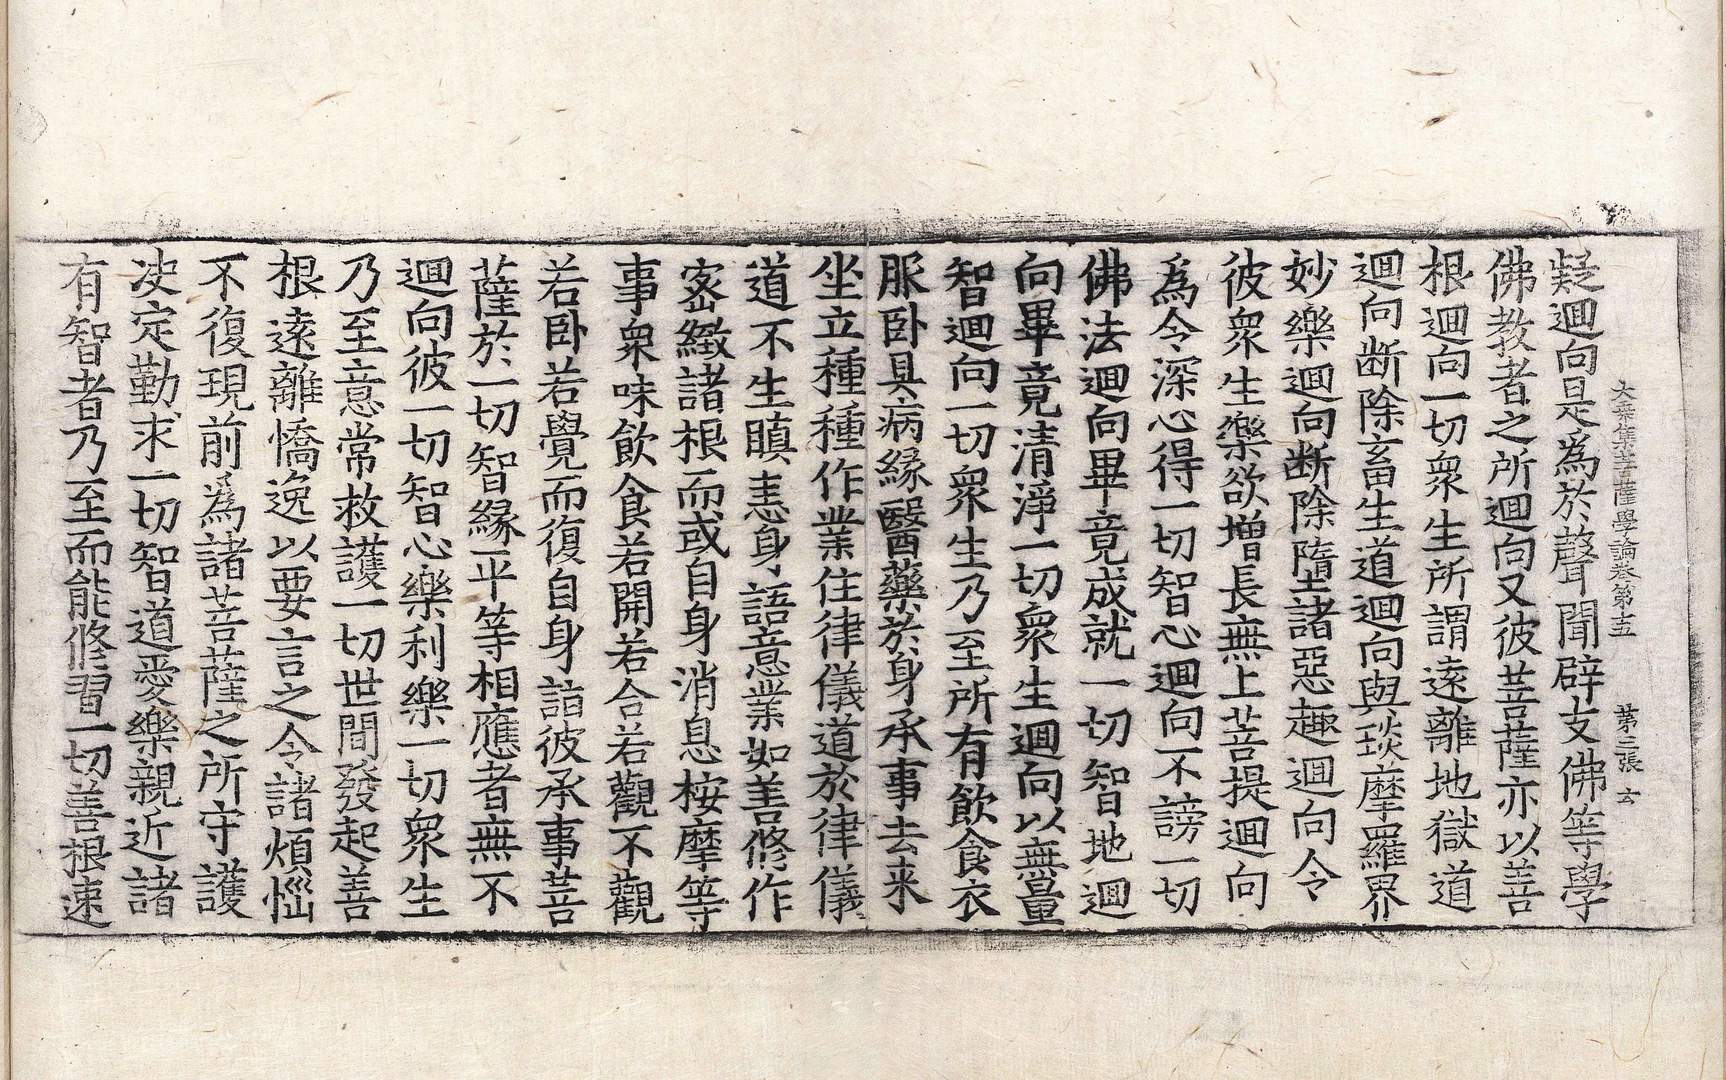 大乘集菩薩學論卷第十五 第二張 玄
疑迴向是為於聲聞辟支佛等學
佛教者之所迴向又彼菩薩亦以善
根迴向一切衆生所謂遠離地獄道
迴向断除畜生道迴向與琰摩羅界
妙樂迴向断除隋諸惡趣迴向令
彼衆生樂欲增長無上菩提迴向
為令深心得一切智心迴向不謗一切
佛法迴向畢竟成就一切智地迴
向畢竟清淨一切衆生迴向以無量
智迴向一切衆生乃至所有飲食衣
服卧具病緣醫藥於身承事去来
坐立種種作業住律儀道於律儀
道不生瞋恚身語意業如善修作
密緻諸根而或自身消息桉摩等
事衆味飲食若開若合若觀不觀
若卧若覺而復自身詣彼承事菩
薩於一切智緣平等相應者無不
迴向彼一切智心樂利樂一切衆生
乃至意常救護一切世間發起善
根遠離憍逸以要言之令諸煩惱
不復現前為諸菩薩之所守護
决定勤求一切智道愛樂親近諸
有智者乃至而能修習一切善根速